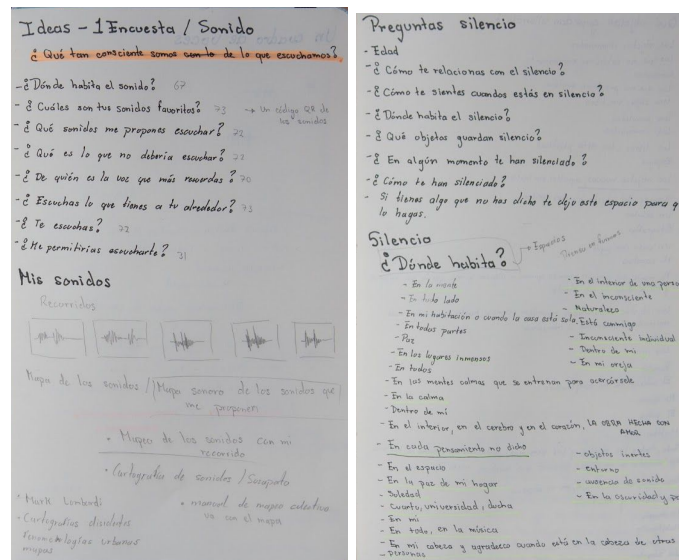 Ideas - 1 Encuesta / Sonido
¿Qué tan consciente somos con lo de lo que escuchamos?
- ¿Dónde habita el sonido? 67
- ¿Cuáles son tus sonidos favoritos? 73 → Un código QR de los sonidos
- ¿Qué sonidos me propones escuchar? 72
- ¿Qué es lo que no debería escuchar?
- ¿De quién es la voz que más recuerdas? 70
- ¿Escuchas lo que tienes a tu alrededor? 73
- ¿Te escuchas? 72
- ¿Me permitirías escucharte? 31
Mis sonidos
Recorridos
Mapa de los sonidos / Mapa sonoro de los sonidos que me proponen
• Mapeo de los sonidos con mi recorrido
• Cartografía de sonidos /
- Mark Lombardi
- Cartografías
urbanas
mapas
• manual de mapeo colectivo
con el mapa
Preguntas silencio
- Edad
- ¿Cómo te relacionas con el silencio?
- ¿Cómo te sientes cuandos estás en silencio?
- ¿Dónde habita el silencio?
- ¿Qué objetos guardan silencio?
- ¿En algún momento te han silenciado?
- ¿Cómo te han silenciado?
- Si tienes algo que no has dicho te dejo este espacio para q
lo hagas.
Silencio
¿Dónde habita? → Espacios
- En la mente
- En todo lado
- En mi habitación o cuando la casa está sola.
- En todas partes
- Paz
- En los lugares inmensos
- En todos
- En las mentes calmas que se entrenan para acercársele
- En la calma
- Dentro de mí
- En el interior, en el cerebro y en el corazón, LA OBRA HECHA CON AMOR
- En cada pensamiento no dicho
- En el espacio
- En la paz de mi hogar
- Soledad
- Cuarto, universidad, ducha
- En mi
- En todo, en la música
- En mi cabeza y agradezco cuando está en la cabeza de otras
- personas
- En el interior de una perso
- En el inconsciente
- Naturaleza
Está conmigo
- Inconsciente individual
- Dentro de mi
- En mi oreja
- objetos inertes
- entorno
- ausencia de sonido
- En la oscuridad y pe